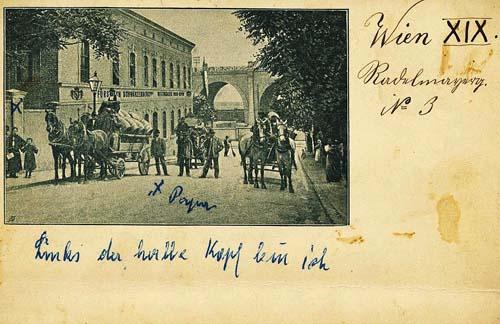 Wien XIX.
Radelmayerg.
No 3
FÜRSTLICH SCHWARZENBERG
x Papa
Links der halbe Kopf bin ich